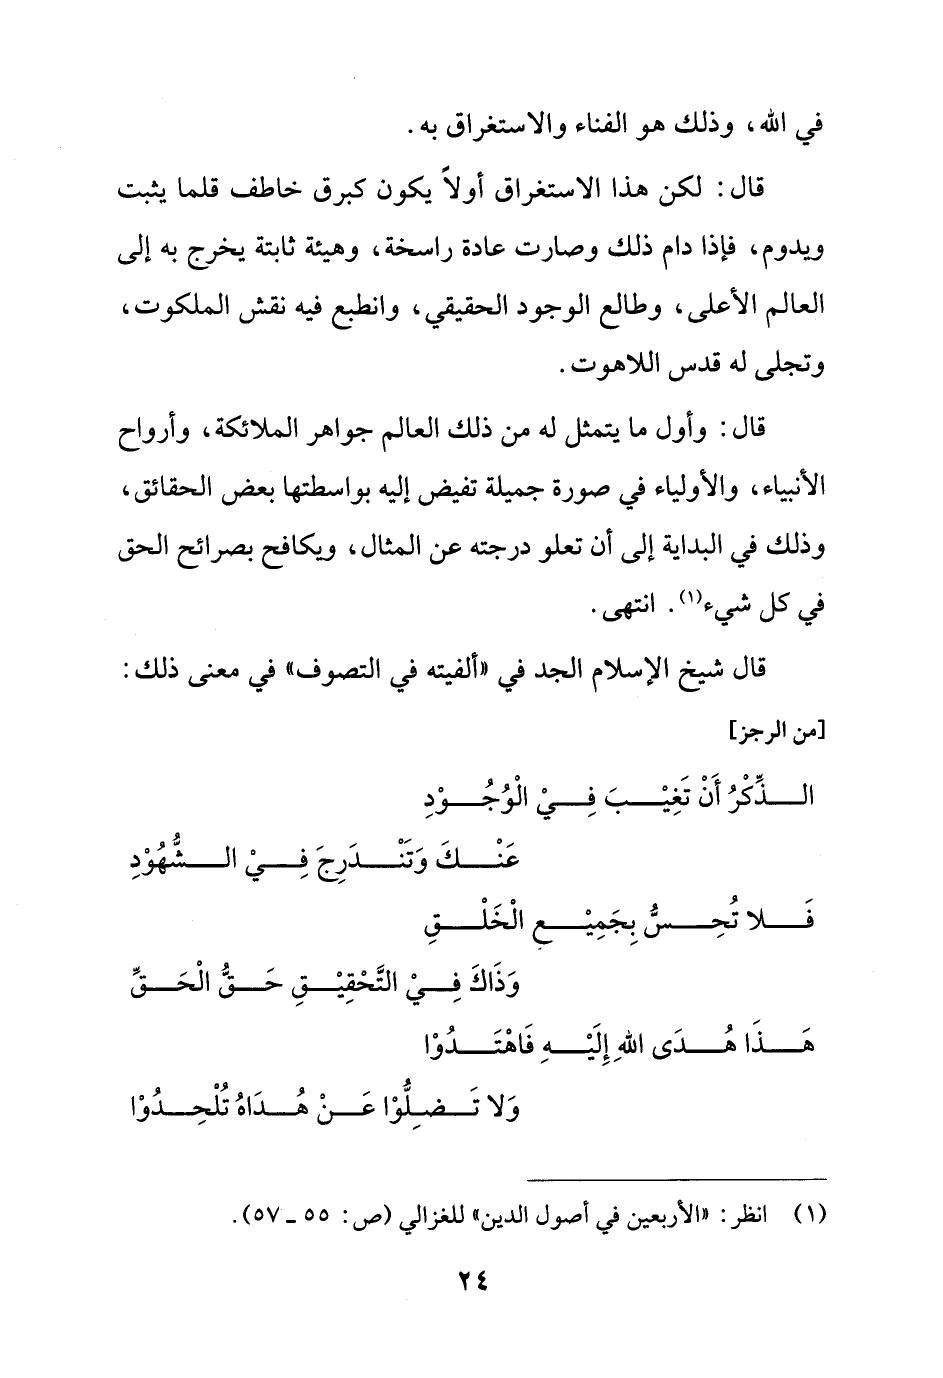 في الله، وذلك هو الفناء والاستغراق به.
قال: لكن هذا الاستغراق أولاً يكون كبرق خاطف قلما يثبت
ويدوم، فإذا دام ذلك وصارت عادة راسخة، وهيئة ثابتة يخرج به إلى
العالم الأعلى، وطالع الوجود الحقيقي، وانطبع فيه نقش الملكوت،
وتجلى له قدس اللاهوت.
قال: وأول ما يتمثل له من ذلك العالم جواهر الملائكة، وأرواح
الأنبياء، والأولياء في صورة جميلة تفيض إليه بواسطتها بعض الحقائق،
وذلك في البداية إلى أن تعلو درجته عن المثال، ويكافح بصرائح الحق
في كل شيء(١). انتهى.
قال شيخ الإسلام الجد في «ألفيته في التصوف» في معنى ذلك:
[من الرجز]
الـذِّكْرُ أَنْ تَغِيْـبَ فِـيْ الْوُجُـوْدِ
عَنْـكَ وَتَنْـدَرِجَ فِـيْ الـشُّهُوْدِ
فَـلا تُحِـسُّ بِجَمِيْـعِ الْخَلْـقِ
وَذَاكَ فِـيْ التَّحْقِيْـقِ حَـقُّ الْحَـقِّ
هَـذَا هُـدَى اللهِ إِلَيْـهِ فَاهْتَـدُوْا
وَلا تَـضِلُّوْا عَـنْ هُـدَاهُ تُلْحِـدُوْا
(١) انظر: «الأربعين في أصول الدين» للغزالي (ص: ٥٥ ـ ٥٧).
٢٤